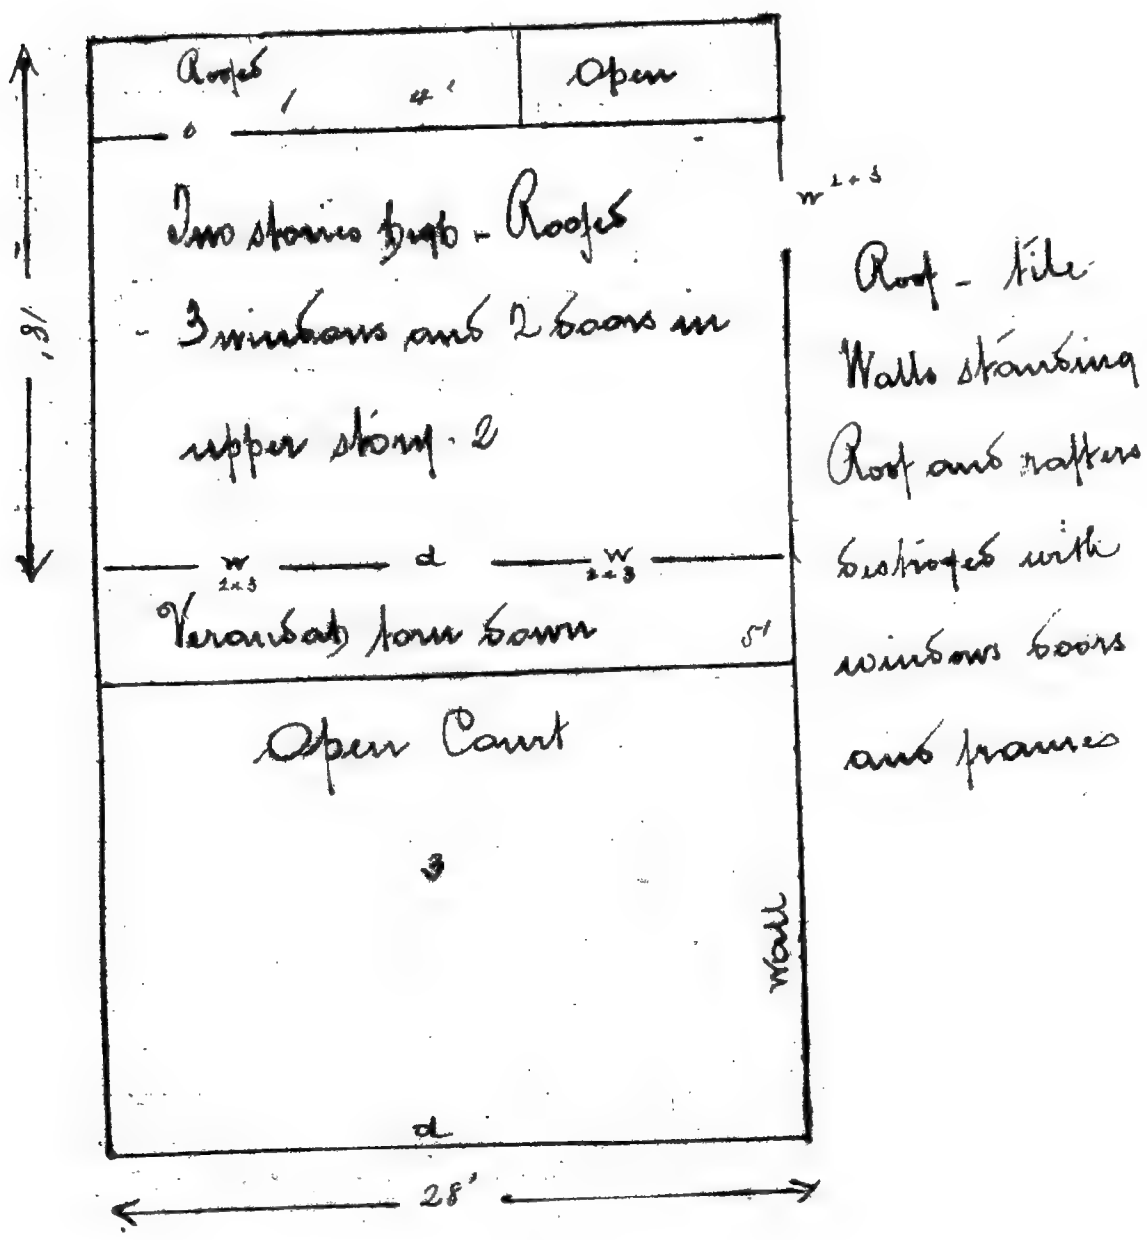 Roofed
Open
1
4'
d
w 2 + 3
Two stories high - Roofed
3 windows and 2 doors in
upper story. 2
18'
w
2 + 3
d
w
2 + 3
Verandah torn down
5'
Open Court
3
Wall
d
28'
Roof - tile
Walls standing
Roof and rafters
destroyed with
windows doors
and frames